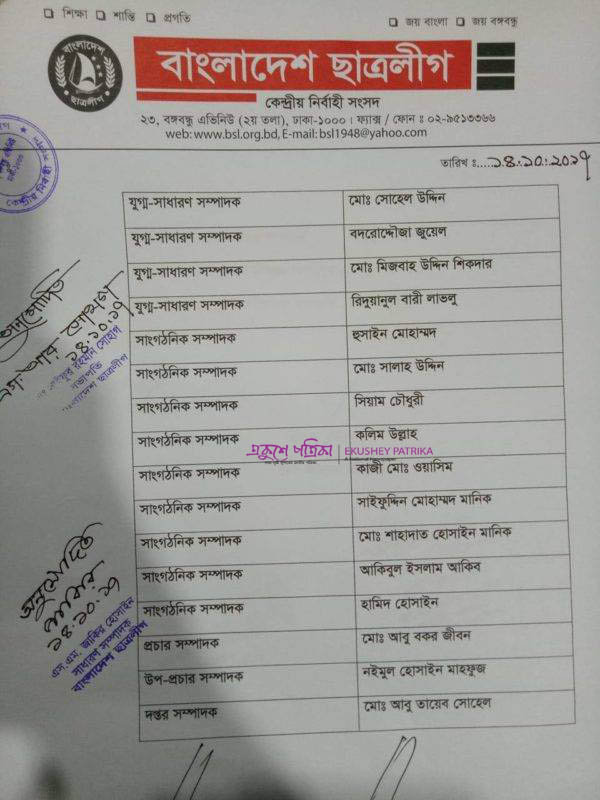 □ শিক্ষা □ শান্তি □ প্রগতি
□ জয় বাংলা □ জয় বঙ্গবন্ধু
বাংলাদেশ
ছাত্রলীগ
বাংলাদেশ ছাত্রলীগ
কেন্দ্রীয় নির্বাহী সংসদ
২৩, বঙ্গবন্ধু এভিনিউ (২য় তলা), ঢাকা-১০০০। ফ্যাক্স / ফোন ঃ ০২-৯৫১৩৩৬৬
web: www.bsl.org.bd, E-mail: bsl1948@yahoo.com
তারিখ ঃ.....১৪.১০.২০১৭
কেন্দ্রীয় নির্বাহী
যুগ্ম-সাধারণ সম্পাদক মোঃ সোহেল উদ্দিন
যুগ্ম-সাধারণ সম্পাদক বদরোদ্দৌজা জুয়েল
যুগ্ম-সাধারণ সম্পাদক মোঃ মিজবাহ উদ্দিন শিকদার
যুগ্ম-সাধারণ সম্পাদক রিদুয়ানুল বারী লাভলু
সাংগঠনিক সম্পাদক হুসাইন মোহাম্মদ
সাংগঠনিক সম্পাদক মোঃ সালাহ উদ্দিন
সাংগঠনিক সম্পাদক সিয়াম চৌধুরী
সাংগঠনিক সম্পাদক কলিম উল্লাহ
একুশে পত্রিকা EKUSHEY PATRIKA
সাংগঠনিক সম্পাদক কাজী মোঃ ওয়াসিম
সাংগঠনিক সম্পাদক সাইফুদ্দিন মোহাম্মদ মানিক
সাংগঠনিক সম্পাদক মোঃ শাহাদাত হোসাইন মানিক
সাংগঠনিক সম্পাদক আকিবুল ইসলাম আকিব
সাংগঠনিক সম্পাদক হামিদ হোসাইন
প্রচার সম্পাদক মোঃ আবু বকর জীবন
উপ-প্রচার সম্পাদক নইমুল হোসাইন মাহফুজ
দপ্তর সম্পাদক মোঃ আবু তায়েব সোহেল
অনুমোদিত
১৪.১০.১৭
রহমান সোহাগ
সভাপতি
বাংলাদেশ ছাত্রলীগ
অনুমোদিত
১৪.১০.১৭
এস.এম. জাকির হোসাইন
সাধারণ সম্পাদক
বাংলাদেশ ছাত্রলীগ